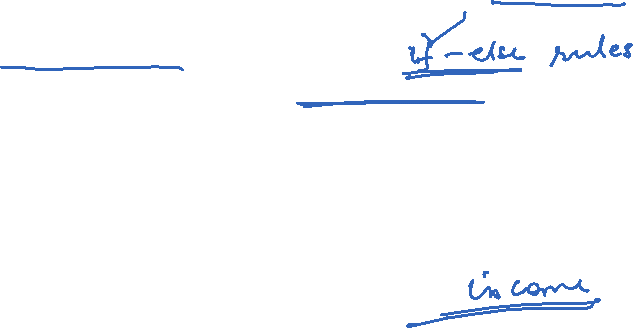 if-else rules
income